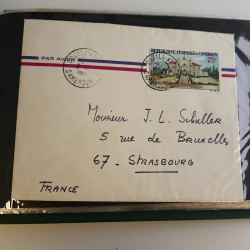 PAR AVION
REPUBLIQUE FEDERALE DU CAMEROUN
Monsieur J. L. Schuller
5 rue de Bruxelles
67 - STRASBOURG
FRANCE